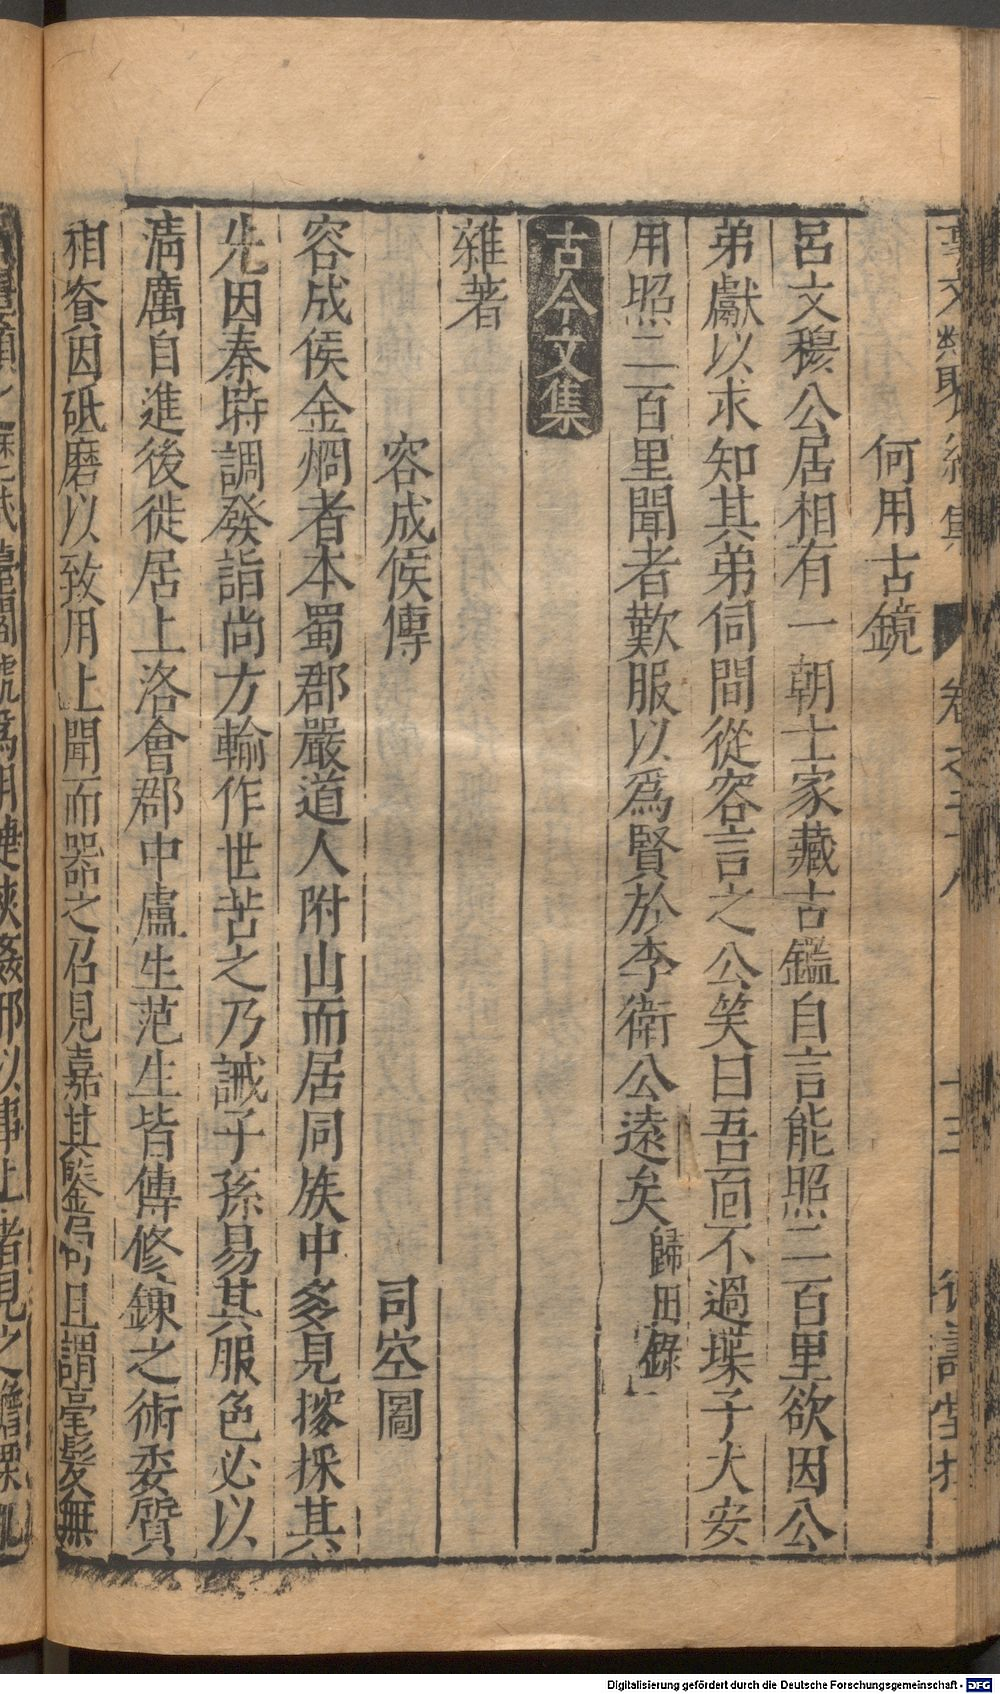 事文類聚 續集 卷之二十八 十三
何用古鏡
呂文穆公居相有一朝士家藏古鑑自言能照二百里欲因公
弟獻以求知其弟伺間從容言之公笑曰吾面不過楪子大安
用照二百里聞者歎服以爲賢於李衛公遠矣歸田錄
古今文集
雜著
容成侯傳 司空圖
容成侯金烱者本蜀郡嚴道人附山而居同族中多見掇採其
先因秦時調發詣尚方輸作世苦之乃誡子孫易其服色必以
淸厲自進後徙居上洛會郡中盧生范生皆傳修鍊之術委質
相資因砥磨以致用上聞而器之召見嘉其鑒局且謂毫髮無
Digitalisierung gefördert durch die Deutsche Forschungsgemeinschaft - DFG